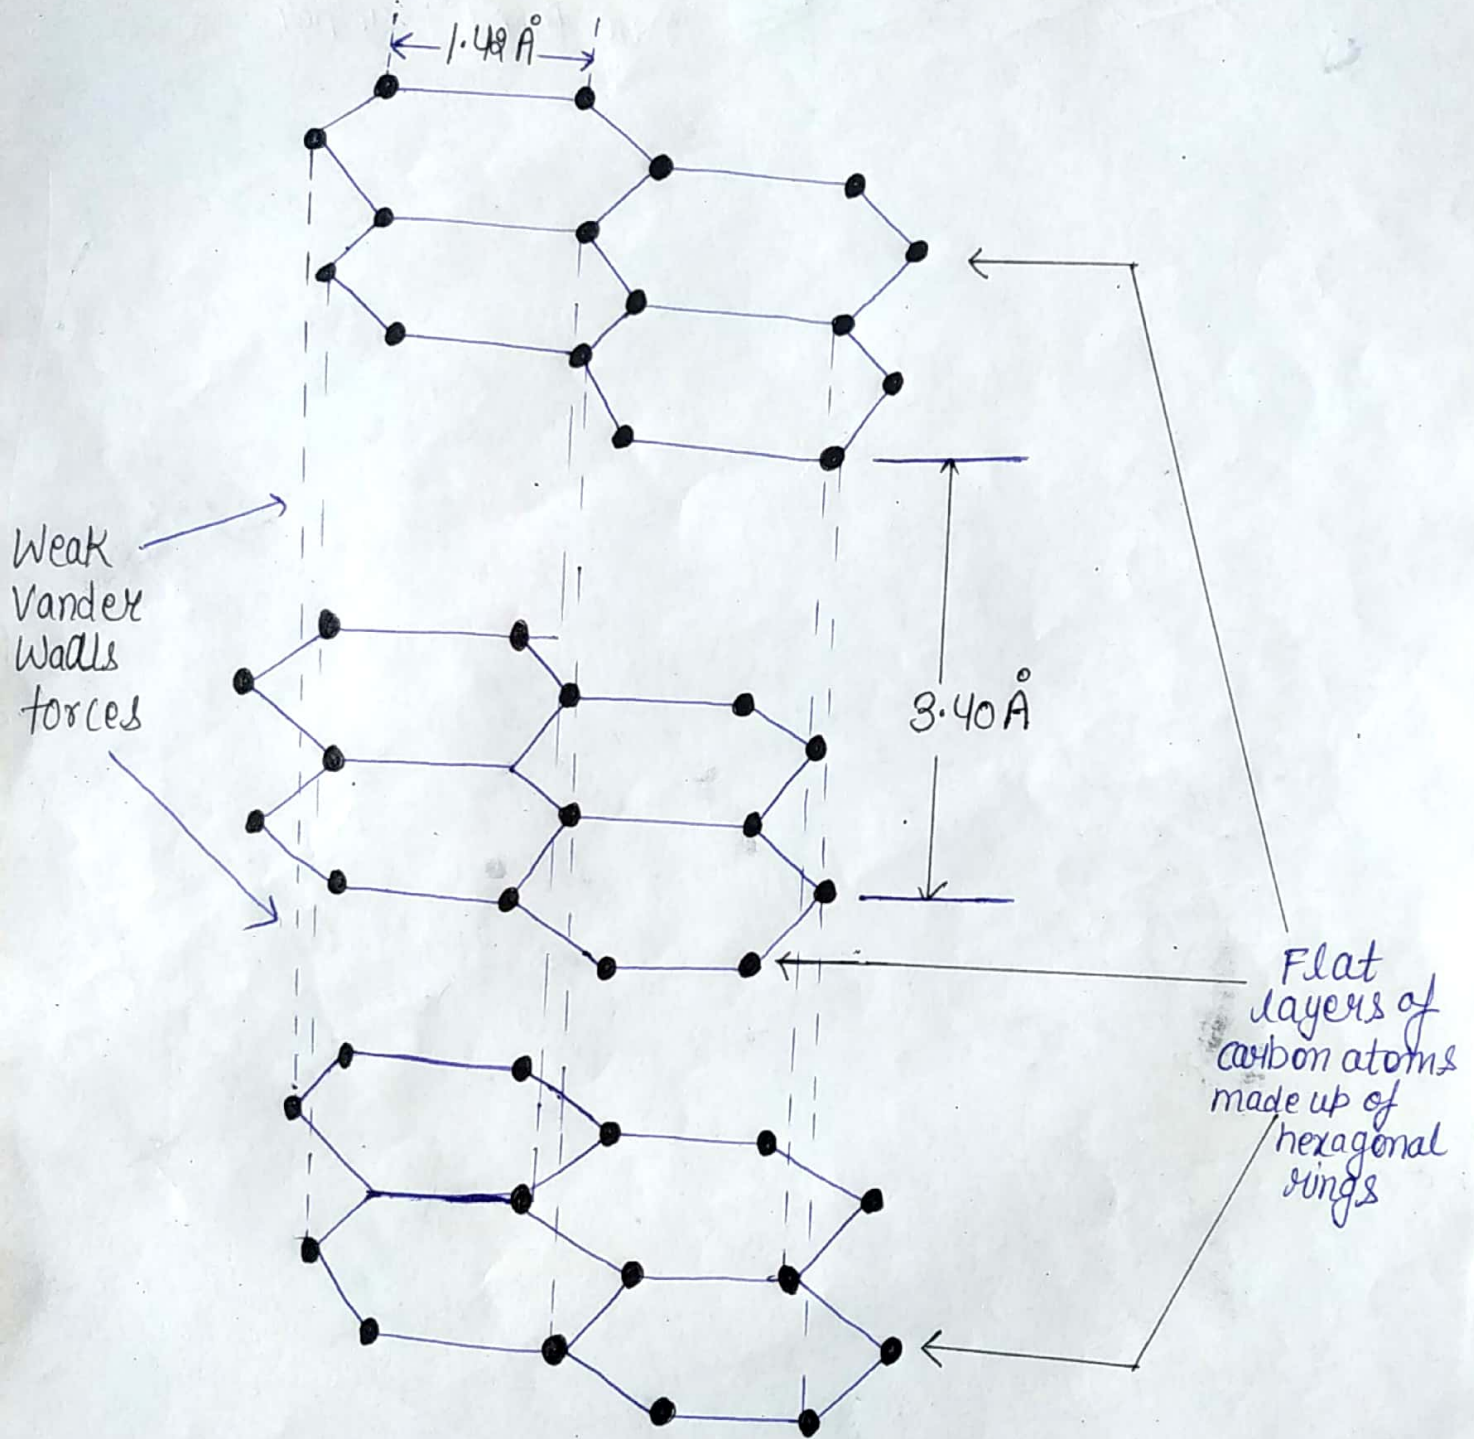 1.42 Å
Weak
Vander
Walls
forces
3.40 Å
Flat
layers of
carbon atoms
made up of
hexagonal
rings